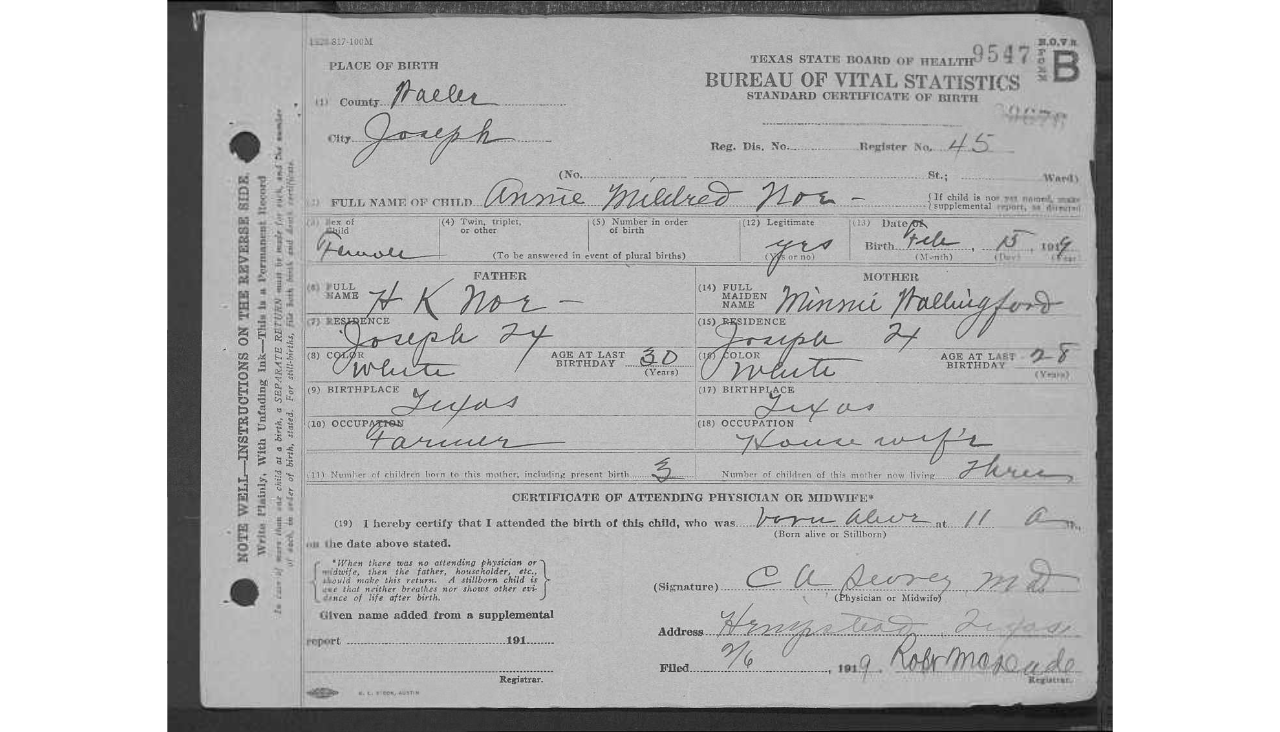 1928-817-100M
PLACE OF BIRTH
TEXAS STATE BOARD OF HEALTH 9547
B.O.V.S.
FORM B
BUREAU OF VITAL STATISTICS
STANDARD CERTIFICATE OF BIRTH
(1) County Waller
City Joseph
Reg. Dis. No. Register No. 45
(No. St.; Ward)
(2) FULL NAME OF CHILD Annie Mildred Noe - {If child is not yet named, make supplemental report, as directed
(3) Sex of Child Female
(4) Twin, triplet, or other
(5) Number in order of birth
(To be answered in event of plural births)
(12) Legitimate yes (Yes or no)
(13) Date of Birth Feb, 15, 1919
(Month) (Day) (Year)
FATHER
MOTHER
(6) FULL NAME H K Noe -
(14) FULL MAIDEN NAME Minnie Wallingford
(7) RESIDENCE Joseph Tx
(15) RESIDENCE Joseph Tx
(8) COLOR White AGE AT LAST BIRTHDAY 30 (Years)
(16) COLOR White AGE AT LAST BIRTHDAY 28 (Years)
(9) BIRTHPLACE Texas
(17) BIRTHPLACE Texas
(10) OCCUPATION Farmer
(18) OCCUPATION House wife
(11) Number of children born to this mother, including present birth 3
Number of children of this mother now living Three
CERTIFICATE OF ATTENDING PHYSICIAN OR MIDWIFE*
(19) I hereby certify that I attended the birth of this child, who was born alive at 11 a m.,
(Born alive or Stillborn)
on the date above stated.
*When there was no attending physician or
midwife, then the father, householder, etc.,
should make this return. A stillborn child is
one that neither breathes nor shows other evi-
dence of life after birth.
(Signature) C A Searcy M D
(Physician or Midwife)
Given name added from a supplemental
report 191
Address Hempstead Texas
Filed 3/6, 1919. Robt
Registrar.
Registrar.
NOTE WELL—INSTRUCTIONS ON THE REVERSE SIDE.
Write Plainly, With Unfading Ink—This is a Permanent Record
In case of more than one child at a birth, a SEPARATE RETURN must be made for each, and the number
of each, in order of birth, stated. For still-births, file both birth and death certificate.